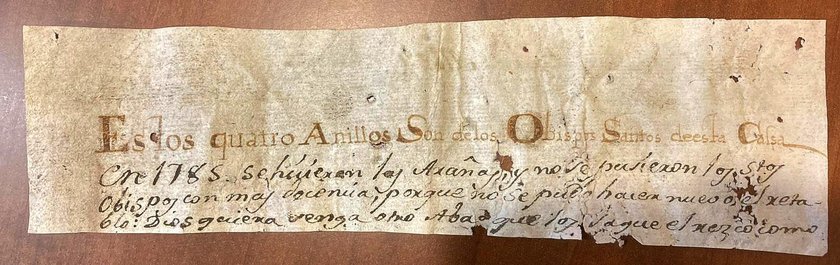 Estos quatro Anillos Son de los Obispos Santos de esta Casa
En 1785. se hicieron las Arañas, y no se pusieron los Stos
Obispos con mas decencia, porque no se pudo hacer nuevo el reta-
blo: Dios quiera venga otro Abad que los saque el como